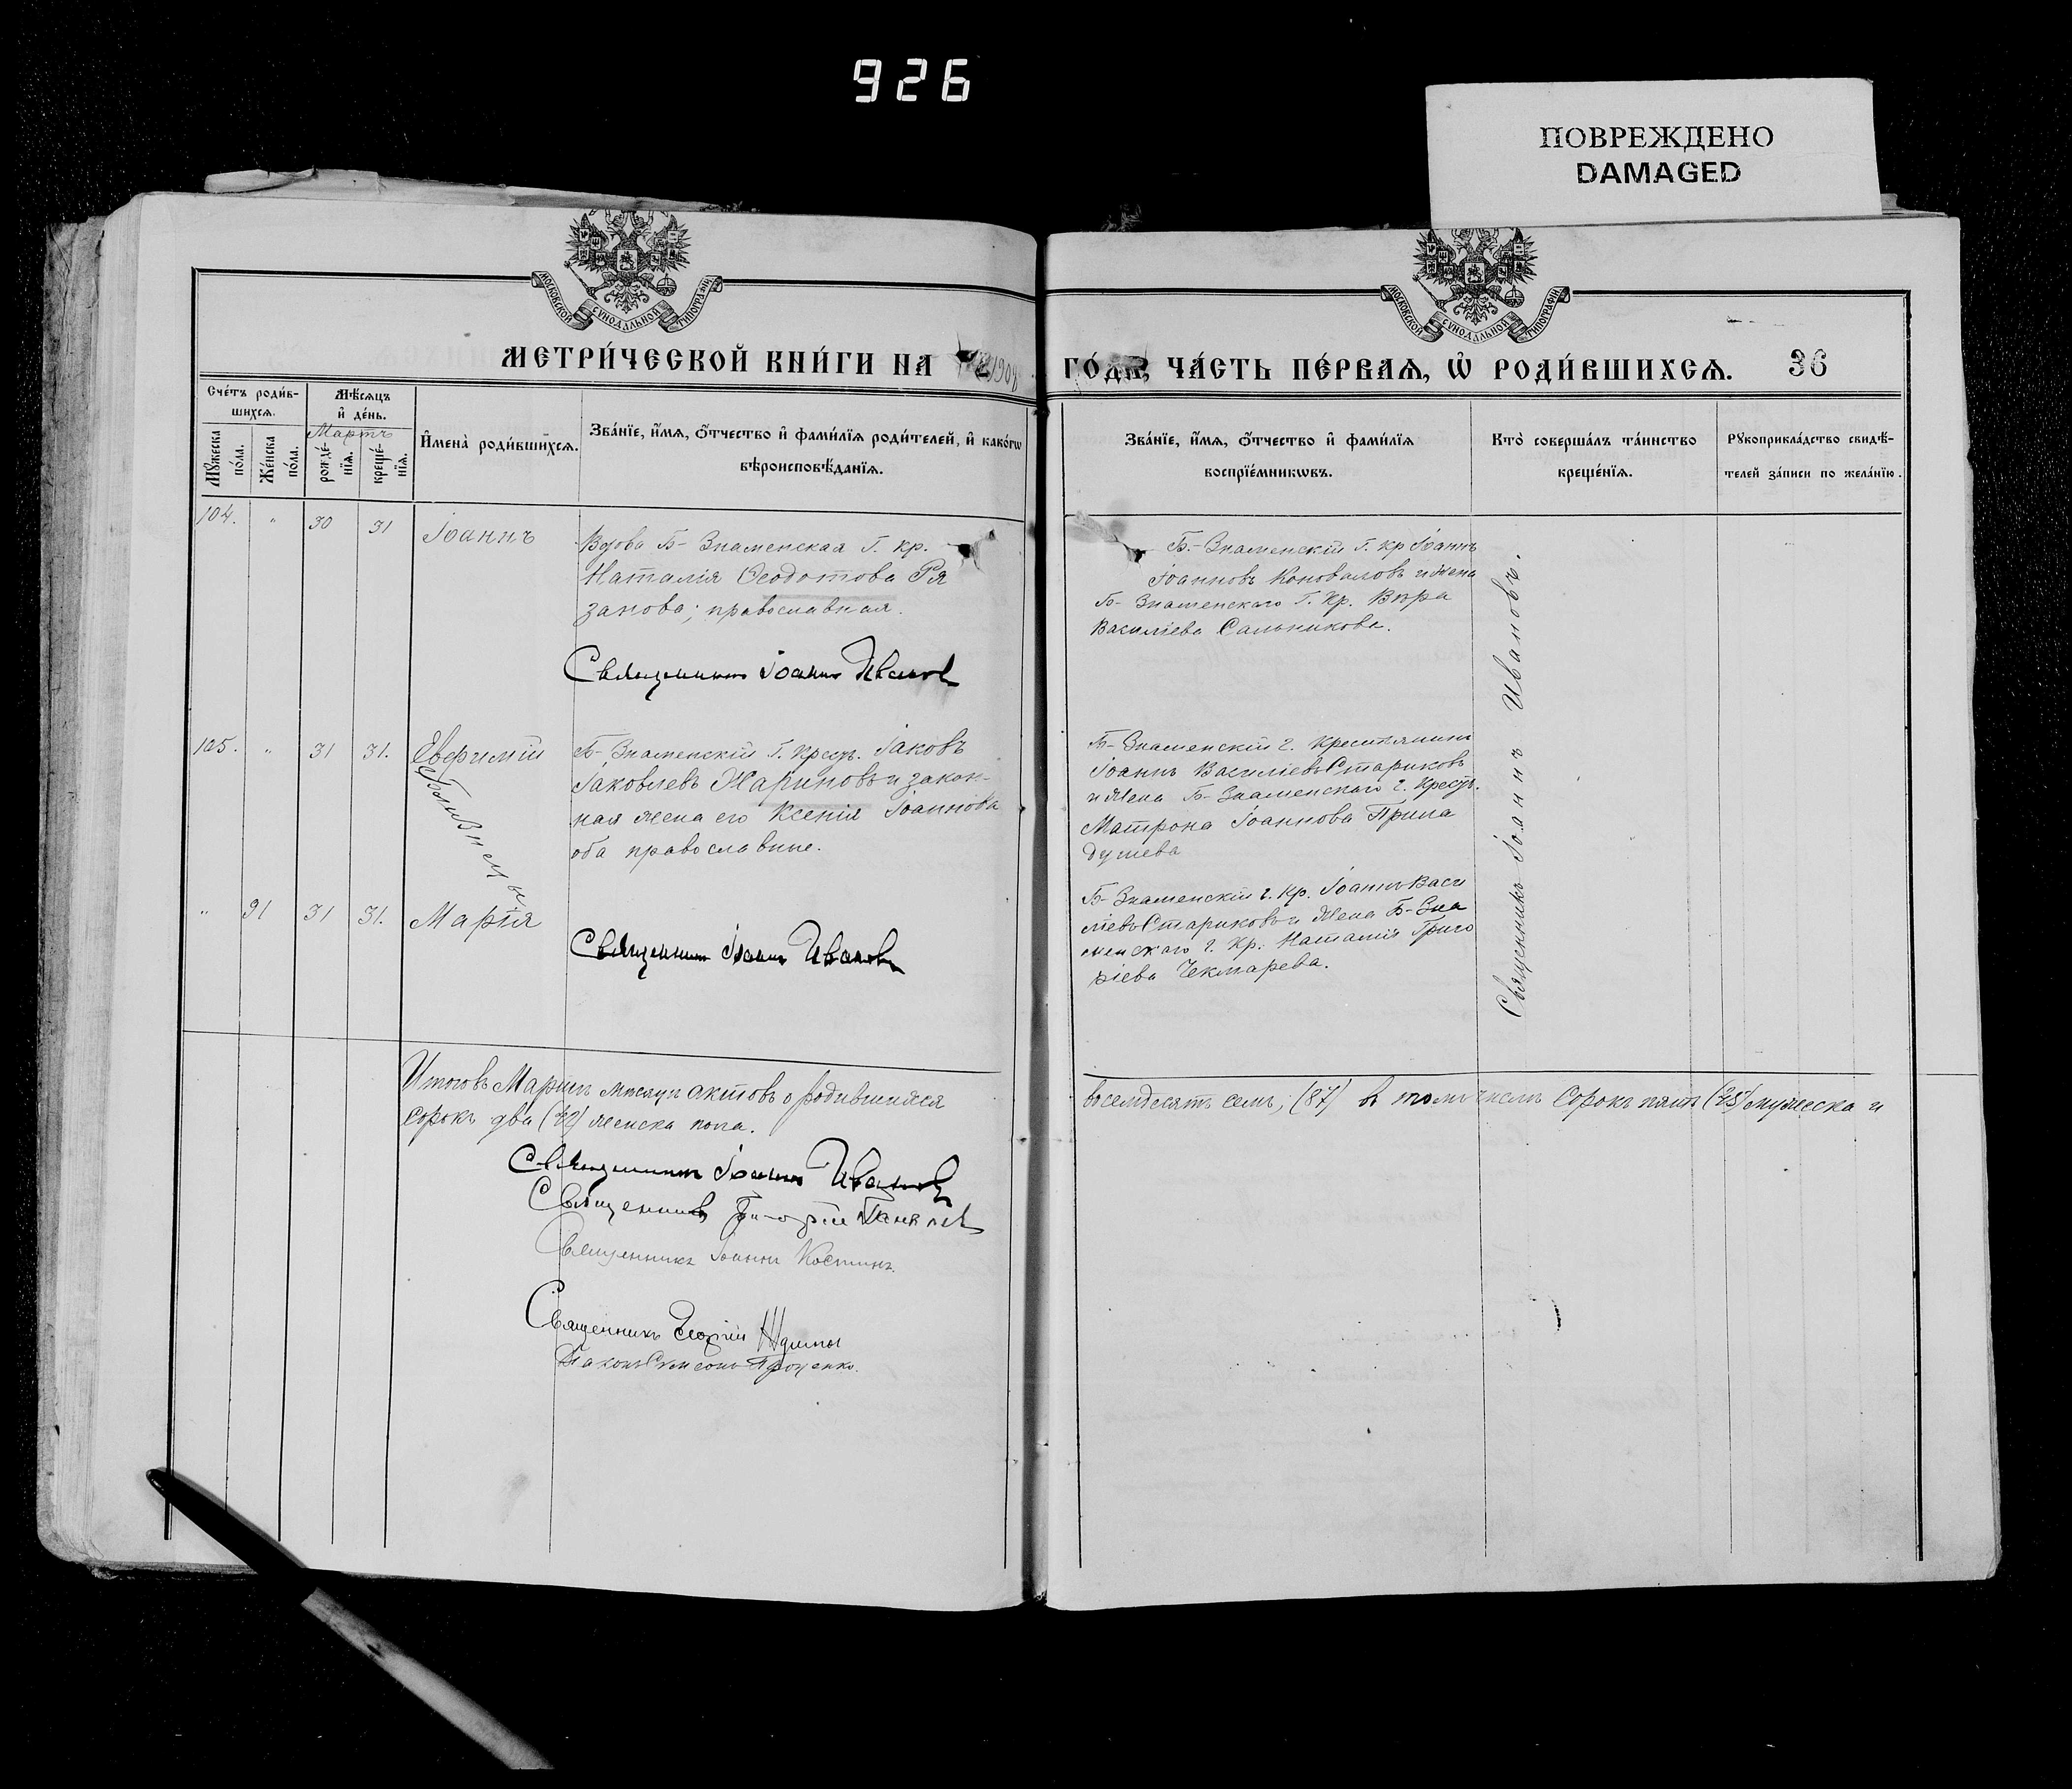 926
ПОВРЕЖДЕНО
DAMAGED
МОСКОВСКОЙ СѴНОДАЛЬНОЙ ТИПОГРАФІИ
МОСКОВСКОЙ СѴНОДАЛЬНОЙ ТИПОГРАФІИ
МЕТРИ́ЧЕСКОЙ КНИ́ГИ НА 1908
ГО́ДЪ, ЧА́СТЬ ПЕ́РВАѦ, Ѡ҆ РОДИ́ВШИХСѦ. 36
Сче́тъ роди́в-
шихсѧ.
Мꙋжеска по́ла.
Же́нска по́ла.
Мѣ́сѧцъ
и҆ де́нь.
Мартъ
рожде́-
нїѧ.
креще́-
нїѧ.
И҆мена̀ роди́вшихсѧ.
Зва́нїе, и҆́мѧ, ѻ҆́тчество и҆ фами́лїѧ роди́телей, и҆ како́гѡ
вѣроисповѣ́данїѧ.
Зва́нїе, и҆́мѧ, ѻ҆́тчество и҆ фами́лїѧ
воспрїе́мникѡвъ.
Кто̀ соверша́лъ та́инство
креще́нїѧ.
Рꙋкоприкла́дство свидѣ́-
телей за́писи по жела́нїю.
104. " 30 31 Іоаннъ
Вдова Б-Знаменская Г. кр.
Наталія Ѳеодотова Ря
занова; православная.
Священникъ Іоаннъ Ивановъ
Б-Знаменскій Г. кр Іоаннъ
Іоанновъ Коноваловъ и жена
Б-Знаменскаго Г. Кр. Вѣра
Василіева Сальникова.
105. " 31 31. Евфимій
Близнецы
Б-Знаменскій Г. Крест. Іаковъ
Іаковлевъ Жариновъ и закон-
ная жена его Ксенія Іоаннова
оба православные.
Б-Знаменскій г. Крестьянинъ
Іоаннъ Василіевъ Стариковъ
и жена Б-Знаменскаго г. Крест.
Матрона Іоаннова Прила
душева
" 91 31 31. Марія
Священникъ Іоаннъ Ивановъ
Б-Знаменскій г. Кр. Іоаннъ Васи
ліевъ Стариковъ и жена Б-Зна
менскаго г. Кр. Наталія Григо
ріева Чекмарева.
Священникъ Іоаннъ Ивановъ.
Итого въ Мартѣ мѣсяцѣ актовъ о родившихся
восемдесятъ семь, (87) въ томъ числѣ сорокъ пять (45) мужеска и
сорокъ два (42) женска пола.
Священникъ Іоаннъ Ивановъ
Священникъ
Священникъ Іоаннъ Костинъ.
Священникъ Георгій
Діаконъ Симеонъ Проценко.